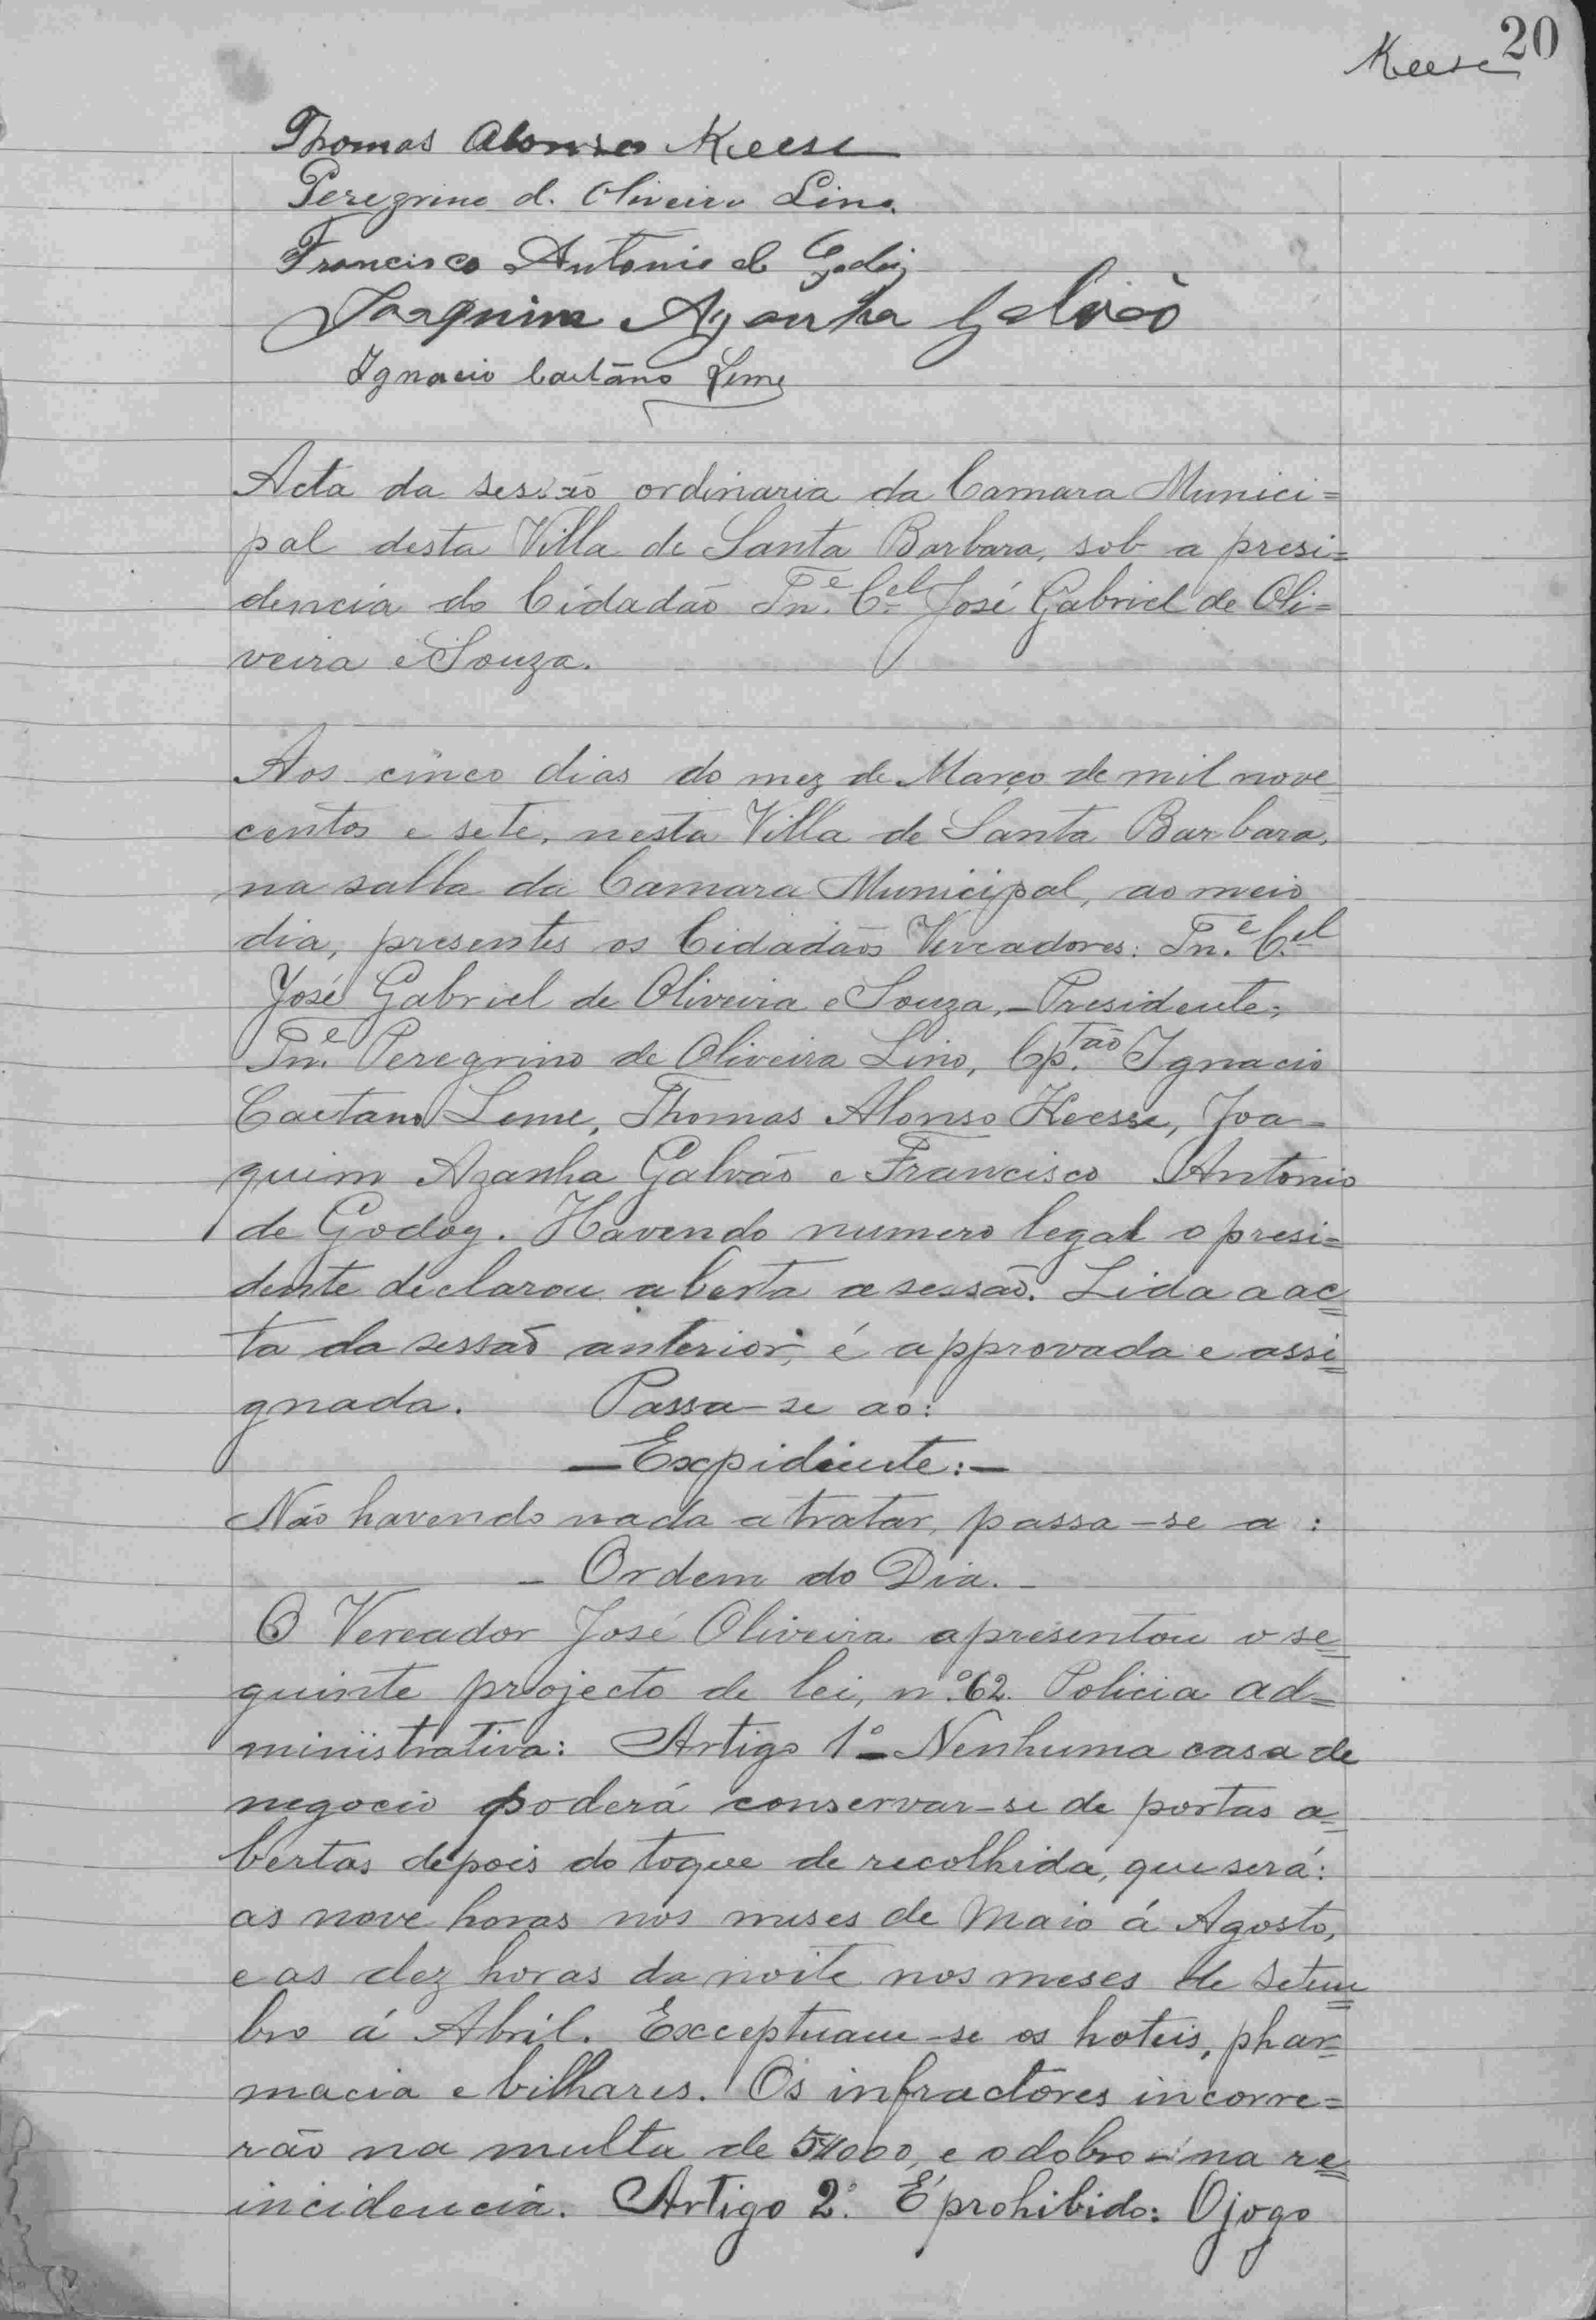 20
Keese
Thomas Alonso Keese
Peregrino d. Oliveira Lino
Francisco Antonio de Godoy
Joaquim Azanha Galvão
Ignacio Caetano Leme
Acta da sessão ordinaria da Camara Munici=
pal desta Villa de Santa Barbara, sob a presi=
dencia do Cidadão Tn.e C.el José Gabriel de Oli=
veira e Souza.
Aos cinco dias do mez de Março de mil nove
centos e sete, nesta Villa de Santa Barbara,
na salla da Camara Municipal, ao meio
dia, presentes os Cidadãos Vereadores: Tn.e C.el
José Gabriel de Oliveira e Souza,- Presidente;
Tn.e Peregrino de Oliveira Lino, Cp.tão Ignacio
Caetano Leme, Thomas Alonso Keese, Joa=
quim Azanha Galvão e Francisco Antonio
de Godoy. Havendo numero legal o presi=
dente declarou aberta a sessão. Lida a ac=
ta da sessão anterior, é approvada e assi=
gnada. Passa-se ao:
— Expidiente: —
Não havendo nada a tratar, passa-se a :
- Ordem do Dia. -
O Vereador José Oliveira apresentou o se=
guinte projecto de lei, n.º 62. Policia ad=
ministrativa: Artigo 1º - Nenhuma casa de
negocio poderá conservar-se de portas a=
bertas depois do toque de recolhida, que será:
as nove horas nos meses de Maio á Agosto,
e as dez horas da noite nos meses de Setem=
bro á Abril. Exceptuam-se os hoteis, phar=
macia e bilhares. Os infractores incorre=
rão na multa de 5$000, e o dobro na re=
incidencia. Artigo 2º. É prohibido: O jogo